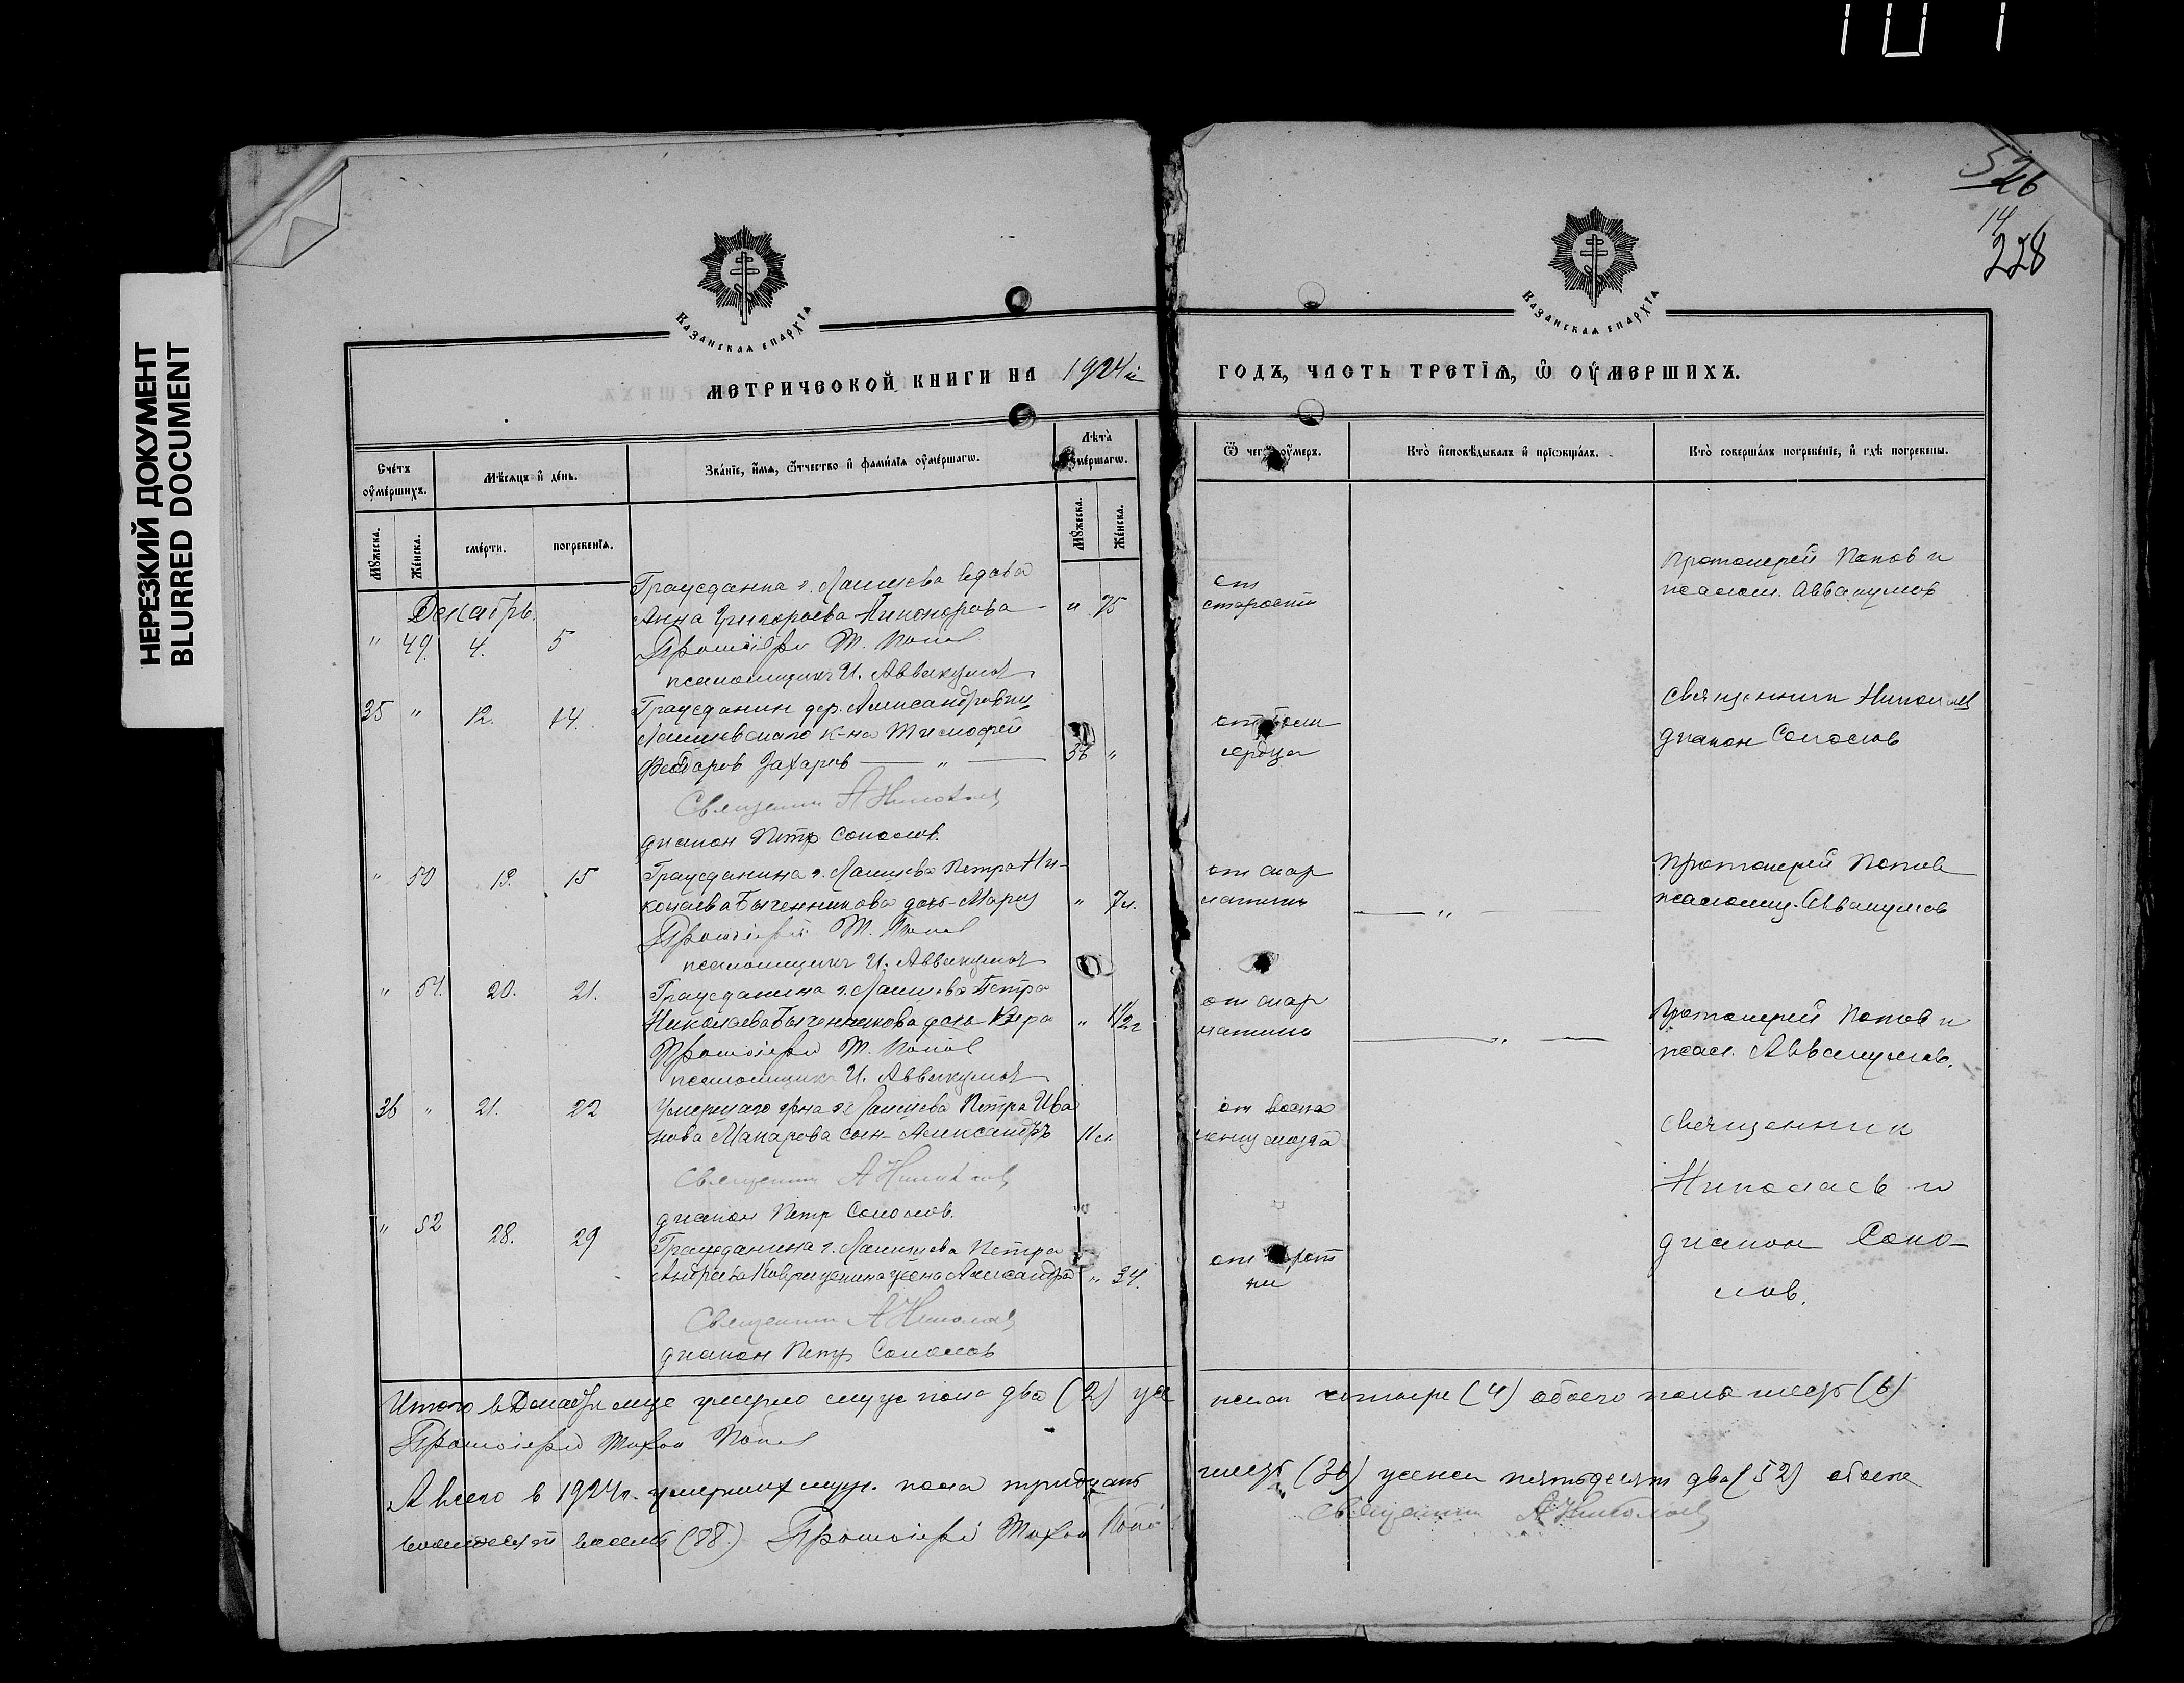 101
НЕРЕЗКИЙ ДОКУМЕНТ
BLURRED DOCUMENT
526
14
228
КАЗАНСКАЯ ЕПАРХІЯ
КАЗАНСКАЯ ЕПАРХІЯ
МЕТРИЧЕСКОЙ КНИГИ НА 1924й ГОДЪ, ЧАСТЬ ТРЕТІѦ, Ѿ ОУМЕРШИХЪ.
Счетъ оумершихъ.
Мѣсяцъ и день.
Званіе, имя, отчество и фамилія оумершагѡ.
Лѣта оумершагѡ.
Ѿ чегѡ оумеръ.
Кто исповѣдывалъ и пріобщалъ.
Кто совершалъ погребеніе, и гдѣ погребены.
Мꙋжеска.
Женска.
смерти.
погребенія.
Мꙋжеска.
Женска.
Декабрь.
Гражданка г. Лаишева вдова
" 49. 4. 5 Анна Григорьева Никонорова - " 75 от старости
Протоіерей Попов и
псаломщ. Аввакумов
Протоіерей Т. Попов
псаломщикъ И. Аввакумов
35 " 12. 14. Гражданин дер. Александровки
Лаишевского к-на Тимофей
Федоров Захаров — " — 36 " от боли сердца
Священник Николаев
диакон Соколов
Священник А Николаев
диакон Петр Соколов.
" 50 13. 15 Гражданина г. Лаишева Петра Ни-
колаева Быченникова дочь - Мария " 7 л. от скарлатины — " —
Протоиерей Попов
псаломщ. Аввакумов
Протоіерей Т. Попов
псаломщикъ И. Аввакумов
" 51. 20. 21. Гражданина г. Лаишева Петра
Николаева Быченникова дочь Вера " 1 1/2 г от скарлатины — " —
Протоиерей Попов и
псал. Аввакумов.
Протоіерей Т. Попов
псаломщикъ И. Аввакумов
36 " 21. 22 Умершаго гр-на г. Лаишева Петра Ива
нова Макарова сын - Александръ 11 л. от воспаления мозга
Священник
Николаев и
диакон Соко-
лов.
Священник А Николаев
диакон Петр Соколов.
" 52 28. 29 Гражданина г. Лаишева Петра
Андреева жена Александра " 34.
Священник А Николаев
диакон Петр Соколов
Итого в Декабре м-це умерло муж пола два (2) женск четыре (4) обоего пола шесть (6)
Протоіерей Тихон Попов
А всего в 1924 г. умерших муж. пола тридцать шесть (36) женск пятьдесят два (52) обоего
восемьдесят восемь (88.) Протоіерей Тихон Попов
Священник А Николаев